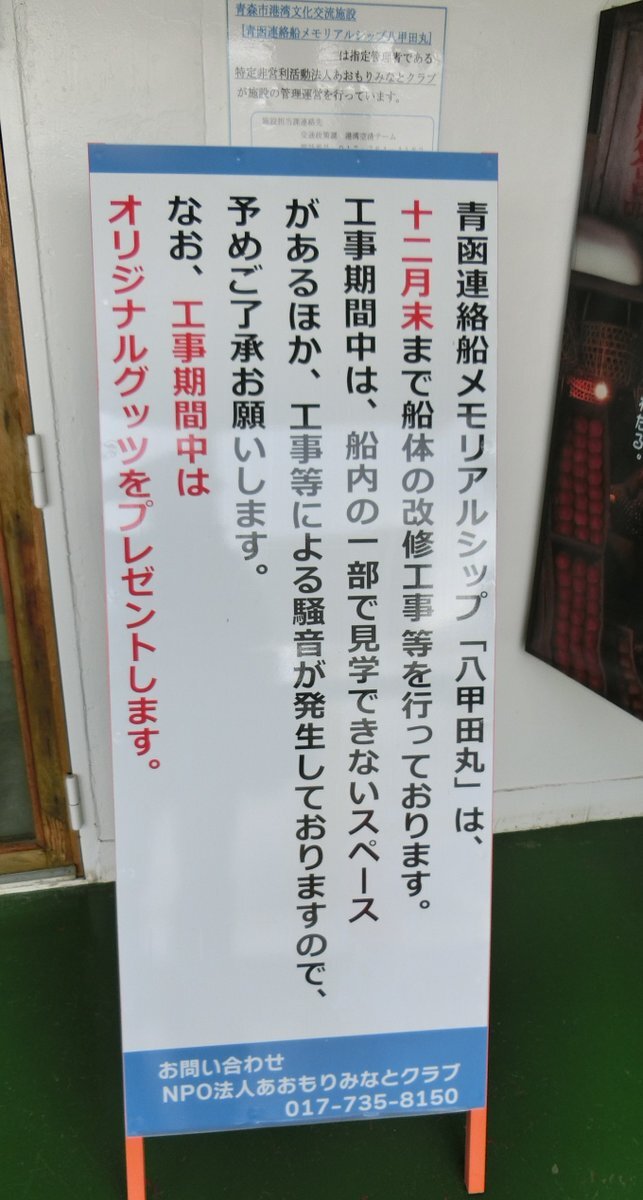 青森市港湾文化交流施設
［青函連絡船メモリアルシップ八甲田丸］
は指定管理者である
特定非営利活動法人あおもりみなとクラブ
が施設の管理運営を行っています。
施設担当課連絡先
青函連絡船メモリアルシップ「八甲田丸」は、
十二月末まで船体の改修工事等を行っております。
工事期間中は、船内の一部で見学できないスペース
があるほか、工事等による騒音が発生しておりますので、
予めご了承お願いします。
なお、工事期間中は
オリジナルグッツをプレゼントします。
お問い合わせ
NPO法人あおもりみなとクラブ
017-735-8150